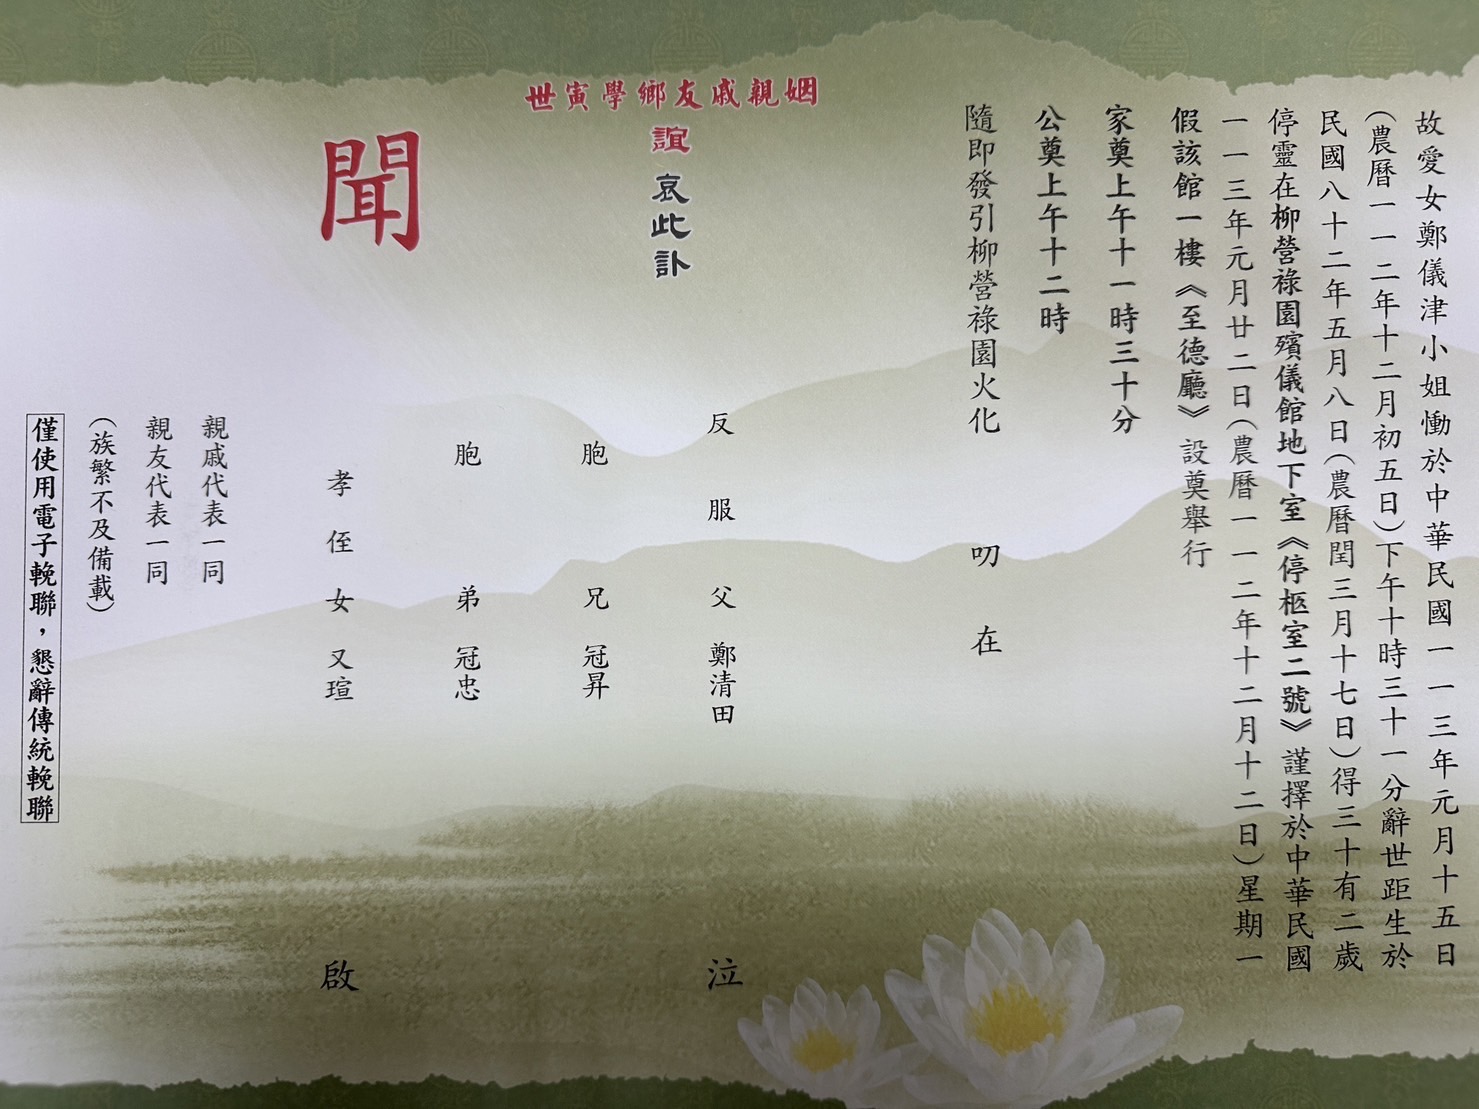 故愛女鄭儀津小姐慟於中華民國一一三年元月十五日
(農曆一一二年十二月初五日)下午十時三十一分辭世距生於
民國八十二年五月八日(農曆閏三月十七日)得三十有二歲
停靈在柳營祿園殯儀館地下室《停柩室二號》謹擇於中華民國
一一三年元月廿二日(農曆一一二年十二月十二日)星期一
假該館一樓《至德廳》設奠舉行
家奠上午十一時三十分
公奠上午十二時
隨即發引柳營祿園火化
叨在
姻親戚友鄉學寅世
誼 哀此訃
聞
反服父 鄭清田 泣
胞兄 冠昇
胞弟 冠忠
孝侄女 又瑄 啟
親戚代表一同
親友代表一同
(族繁不及備載)
僅使用電子輓聯，懇辭傳統輓聯